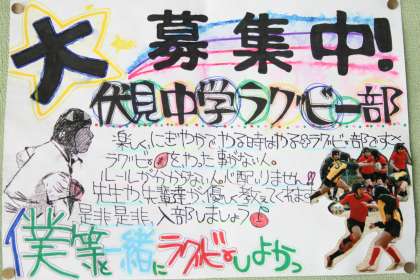 大募集中!
伏見中学ラグビー部
楽しくにぎやかでやる時はやるのラグビー部です
ラグビーをやった事がない人。
ルールが分からない人心配いりません!!
先生や先輩達が優しく教えてくれます
是非是非、入部しましょう!
僕等と一緒にラグビーしよかっ